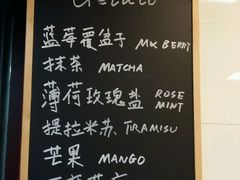 Gelato
蓝莓覆盆子 MIX BERRY
抹茶 MATCHA
薄荷玫瑰盐 ROSE MINT
提拉米苏 TIRAMISU
芒果 MANGO